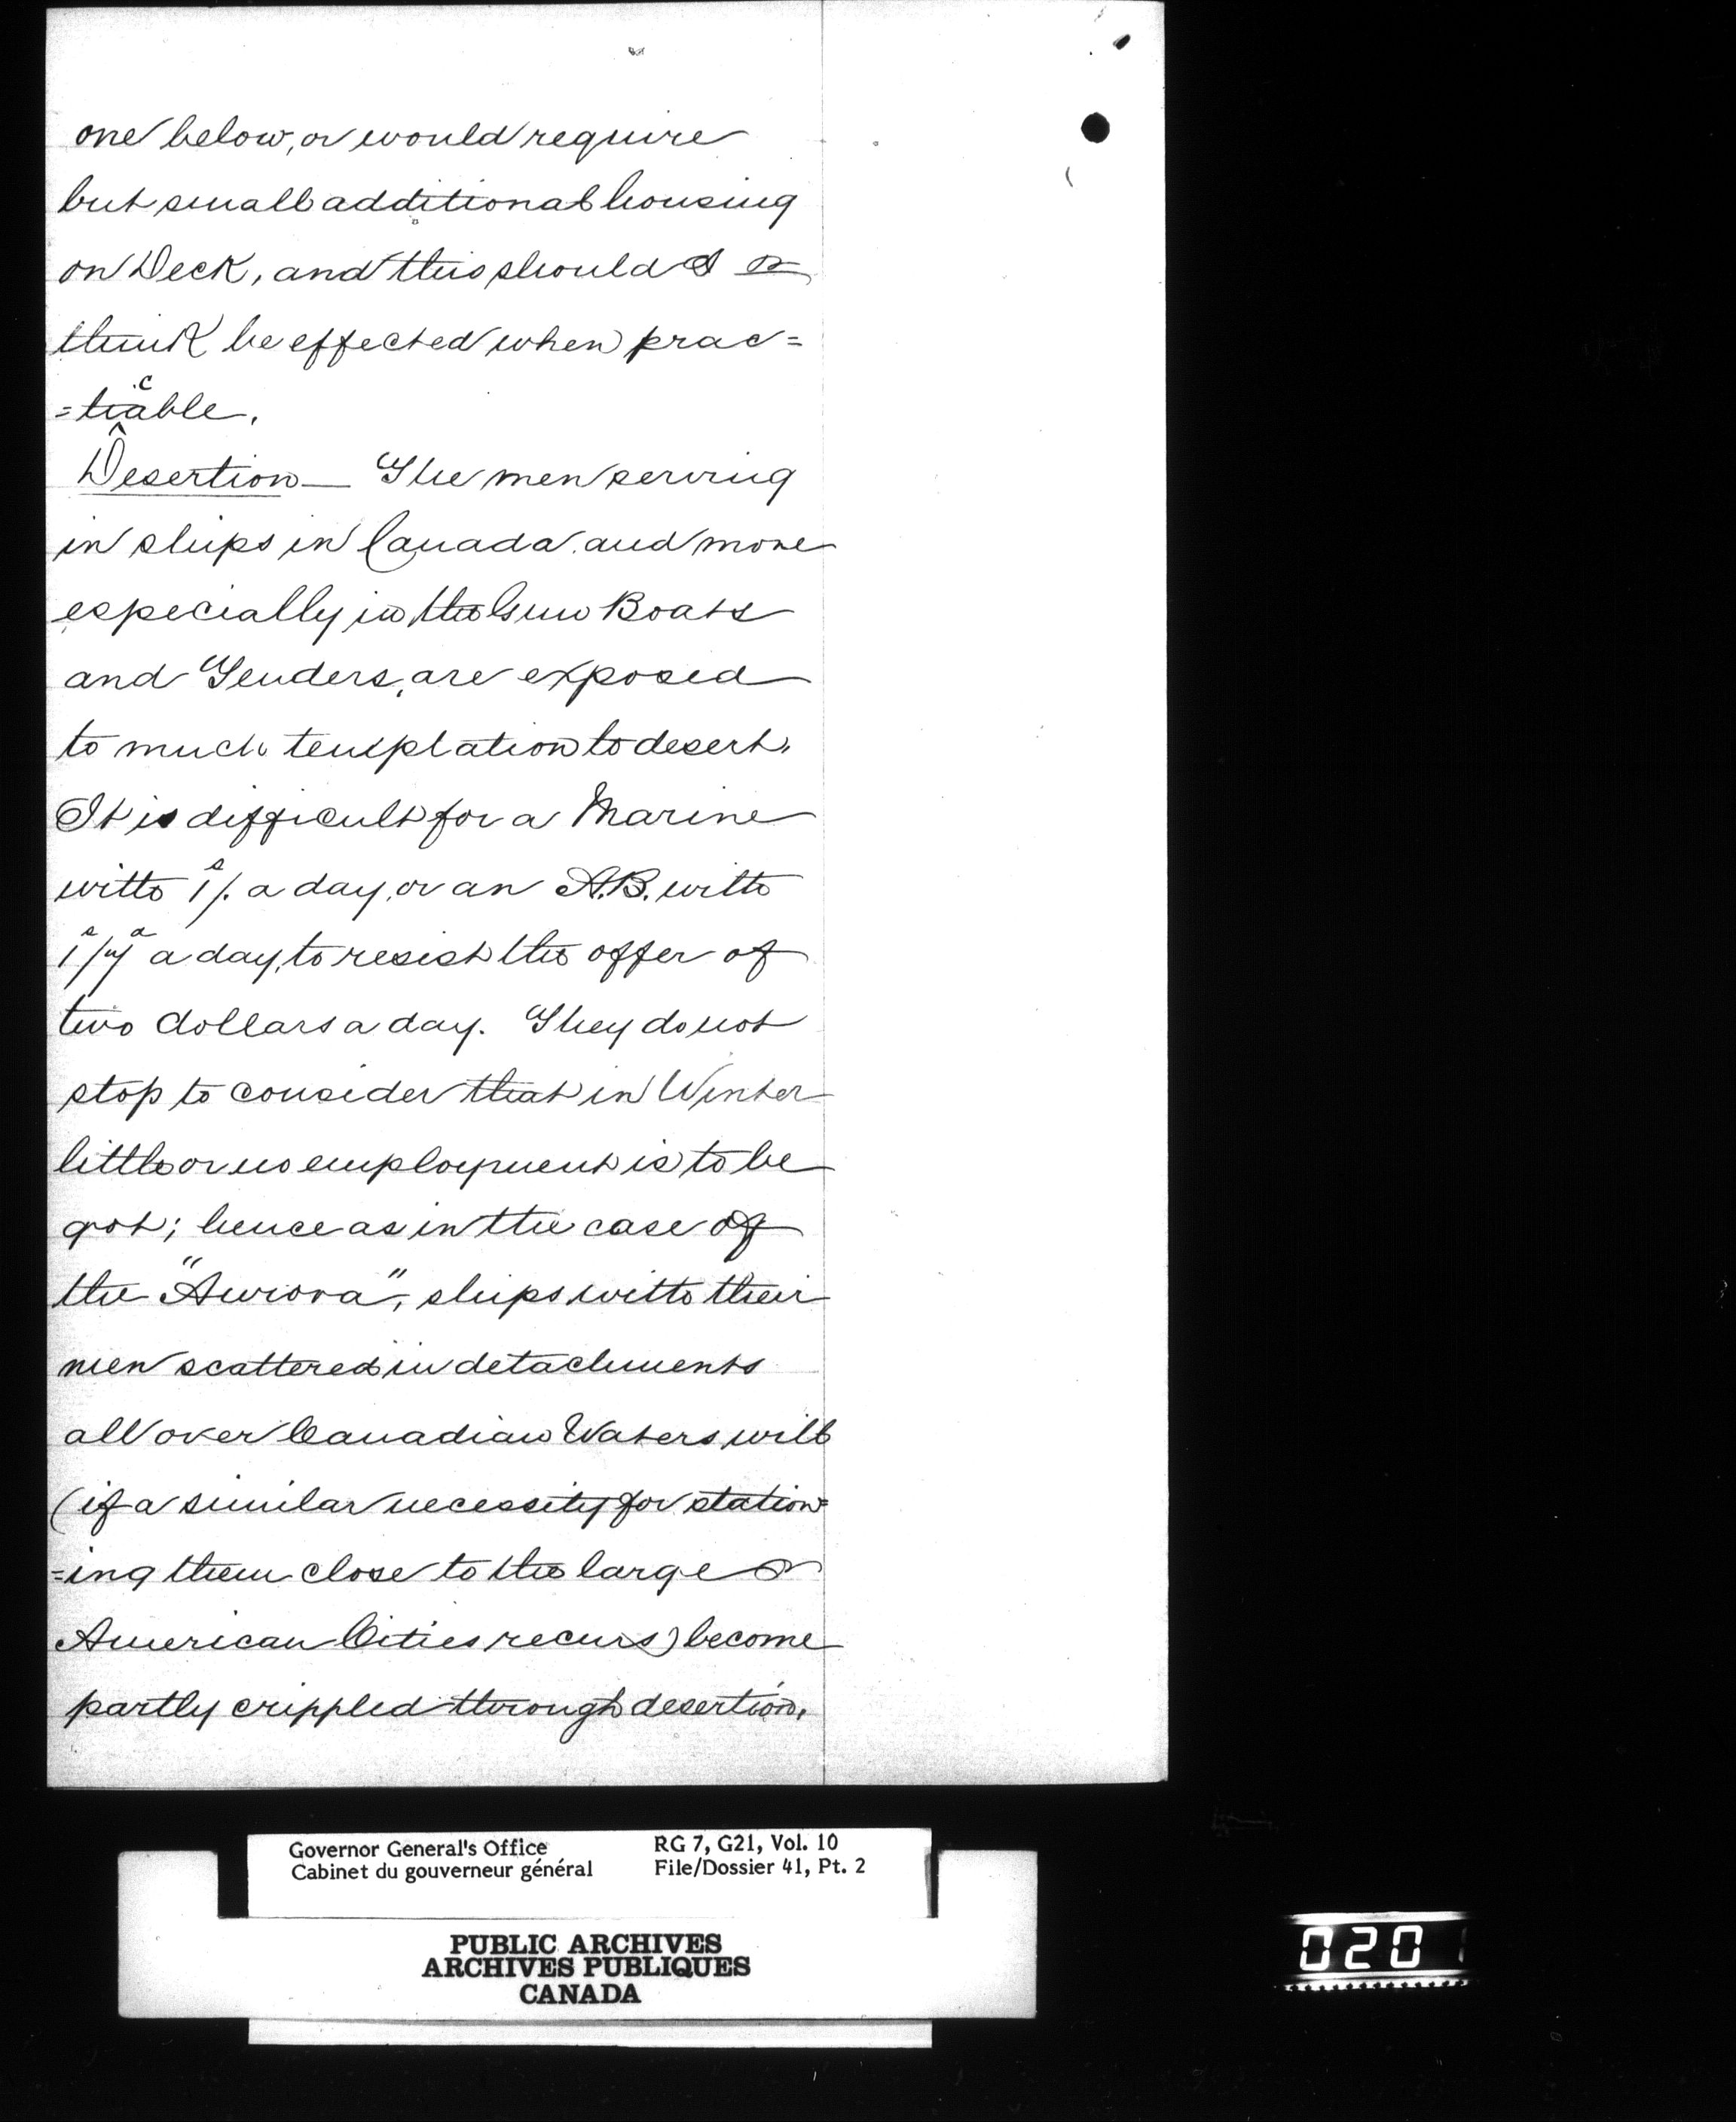 one below, or would require
but small additional housing
on Deck, and this should I
think be effected when prac=
=ticable.
Desertion — The men serving
in ships in Canada and more
especially in the Gun Boats
and Tenders, are exposed
to much temptation to desert.
It is difficult for a Marine
with 1s/. a day, or an A.B. with
1s/7d a day, to resist the offer of
two dollars a day. They do not
stop to consider that in Winter
little or no employment is to be
got; hence as in the case of
the "Aurora", ships with their
men scattered in detachments
all over Canadian Waters will
(if a similar necessity for station=
=ing them close to the large
American Cities recurs) become
partly crippled through desertion.
Governor General's Office RG 7, G21, Vol. 10
Cabinet du gouverneur général File/Dossier 41, Pt. 2
PUBLIC ARCHIVES
ARCHIVES PUBLIQUES
CANADA
020